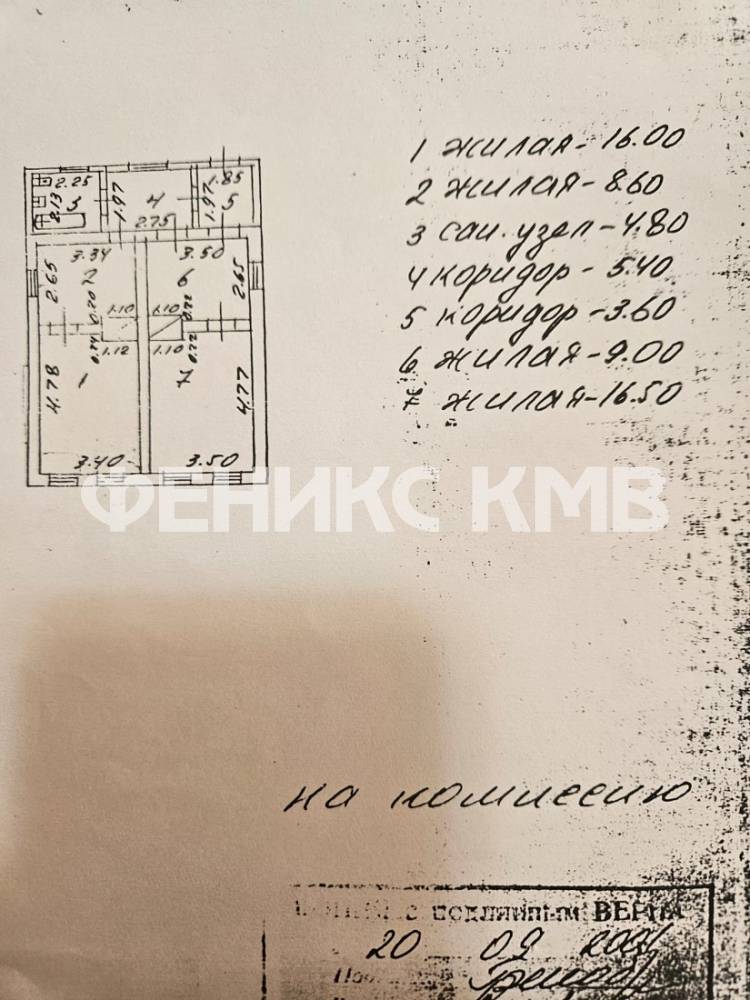 1 жилая - 16.00
2 жилая - 8.60
3 сан. узел - 4.80
4 коридор - 5.40
5 коридор - 3.60
6 жилая - 9.00
7 жилая - 16.50
2.25
2.13
3
1.97
4
2.75
1.97
1.85
5
3.34
2.65
2
3.50
6
2.65
0.70
1.10
1.10
0.72
0.74
1.12
1.10
0.72
4.78
1
7
4.77
3.40
3.50
ФЕНИКС КМВ
на комиссию
ВЕРНА
20 09